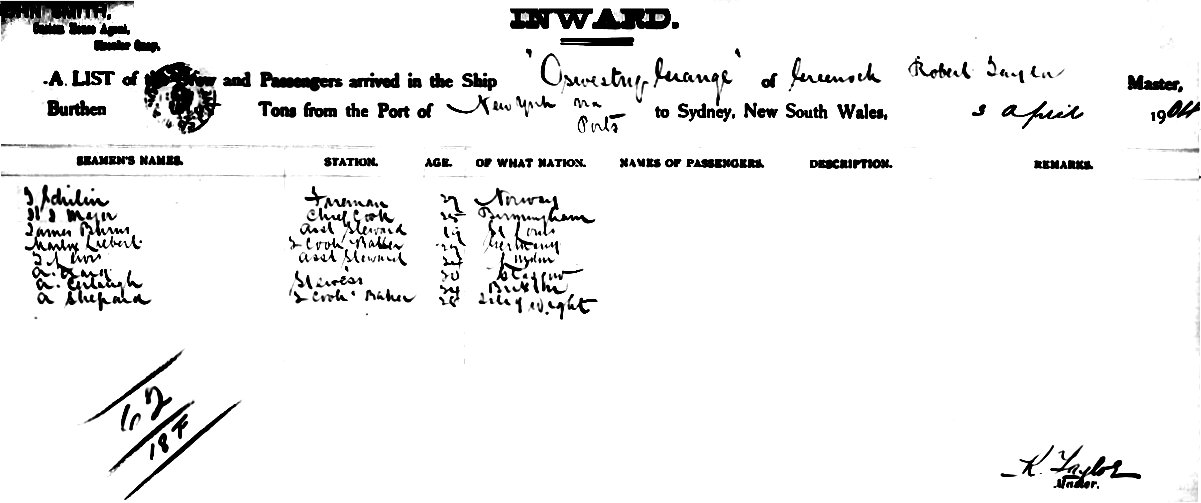 JOHN SMITH,
Custom House Agent,
Circular Quay.
INWARD.
A LIST of the Crew and Passengers arrived in the Ship "Oswestry Grange" of Greenock Robert Taylor Master,
Burthen Tons from the Port of New York via Ports to Sydney, New South Wales, 3 April 1904
SEAMEN'S NAMES. STATION. AGE. OF WHAT NATION. NAMES OF PASSENGERS. DESCRIPTION. REMARKS.
Fireman 27 Norway
Major Chief Cook 25 Birmingham
James Burns Asst Steward 19 St Louis
Liebert 2 Cook Baker Germany
Asst Steward
A. 30 Glasgow
A. Stewess
A Shepard 2 Cook Baker 28 Isle of Wight
62
18 F
R. Taylor
Master.